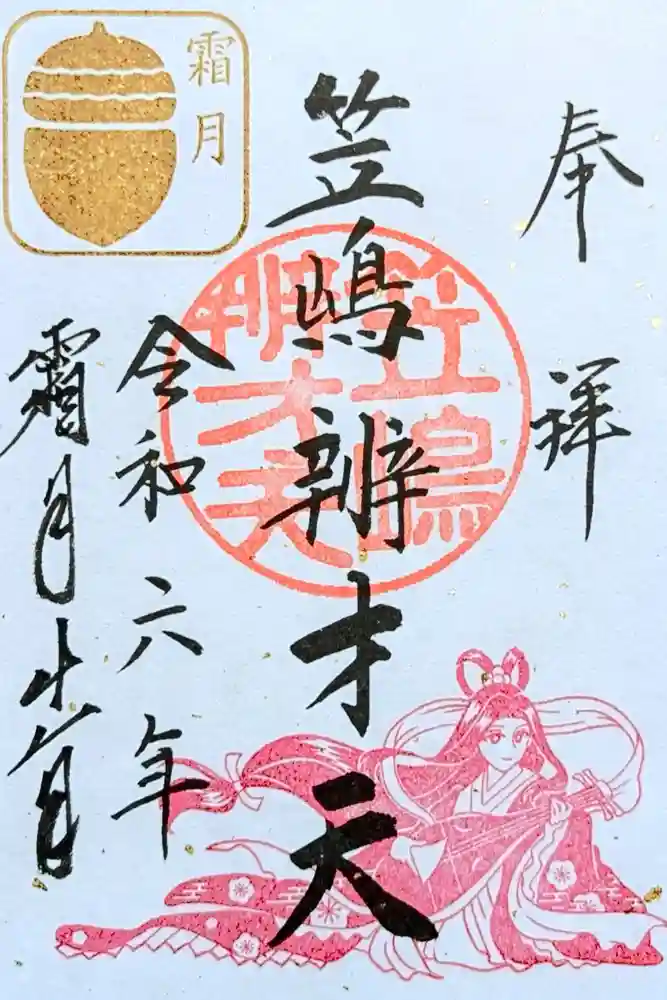 奉拝
笠嶋辨才天
令和六年
霜月十八日
霜月
笠嶋
辨才天